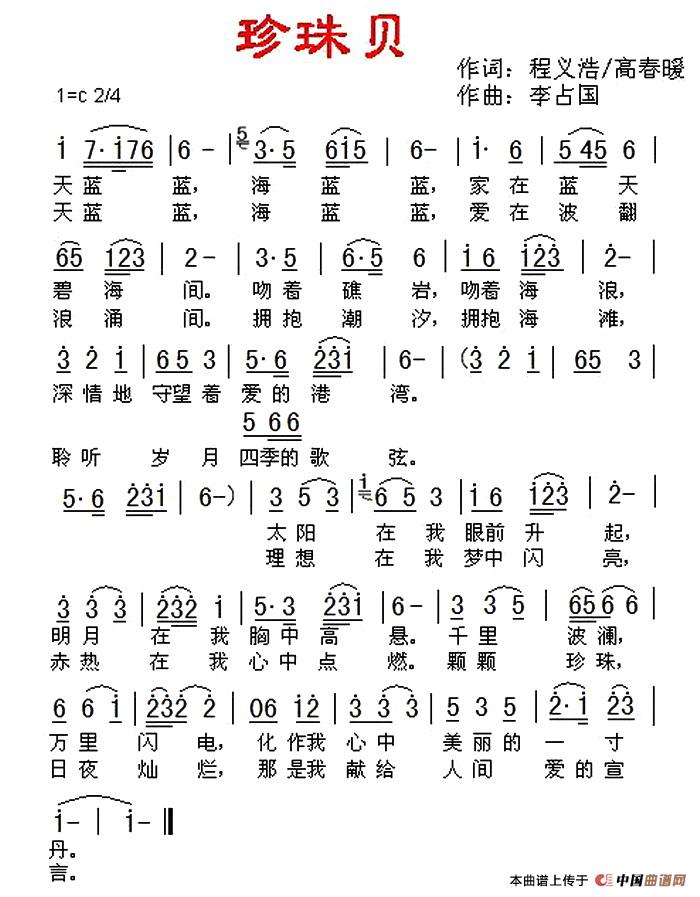 珍珠贝
作词：程义浩/高春暖
1=c 2/4
作曲：李占国
i 7·i76 | 6 - | 5 3·5 6i5 | 6- | i· 6 | 5 45 6 |
天蓝 蓝， 海 蓝 蓝， 家 在 蓝 天
天蓝 蓝， 海 蓝 蓝， 爱 在 波 翻
65 i23 | 2 - | 3·5 | 6·5 6 | i 6 i23 |
碧 海 间。 吻着 礁 岩，吻着 海 浪，
浪 涌 间。 拥抱 潮 汐，拥抱 海 滩，
3 2 i | 6 5 3 | 5·6 23i | 6- | (3 2 i | 65 3 |
深 情 地 守望 着 爱 的 港 湾。
5 66
聆 听 岁 月 四季的 歌 弦。
5·6 23i | 6-) | 3 5 3 | i 6 5 3 | i 6 i23 | 2- |
太 阳 在 我 眼前 升 起，
理 想 在 我 梦中 闪 亮，
3 3 3 | 232 i | 5·3 23i | 6- | 3 3 5 | 656 6 |
明 月 在 我 胸 中 高 悬。 千 里 波 澜，
赤 热 在 我 心 中 点 燃。 颗 颗 珍 珠，
6 6 i | 232 2 | 06 i2 | 3 3 | 5 3 5 | 2·i 23 |
万 里 闪 电， 化 作我 心 中 美 丽 的 一 寸
日 夜 灿 烂， 那 是我 献 给 人 间 爱 的 宣
i- | i- ‖
丹。
言。
本曲谱上传于 中国曲谱网